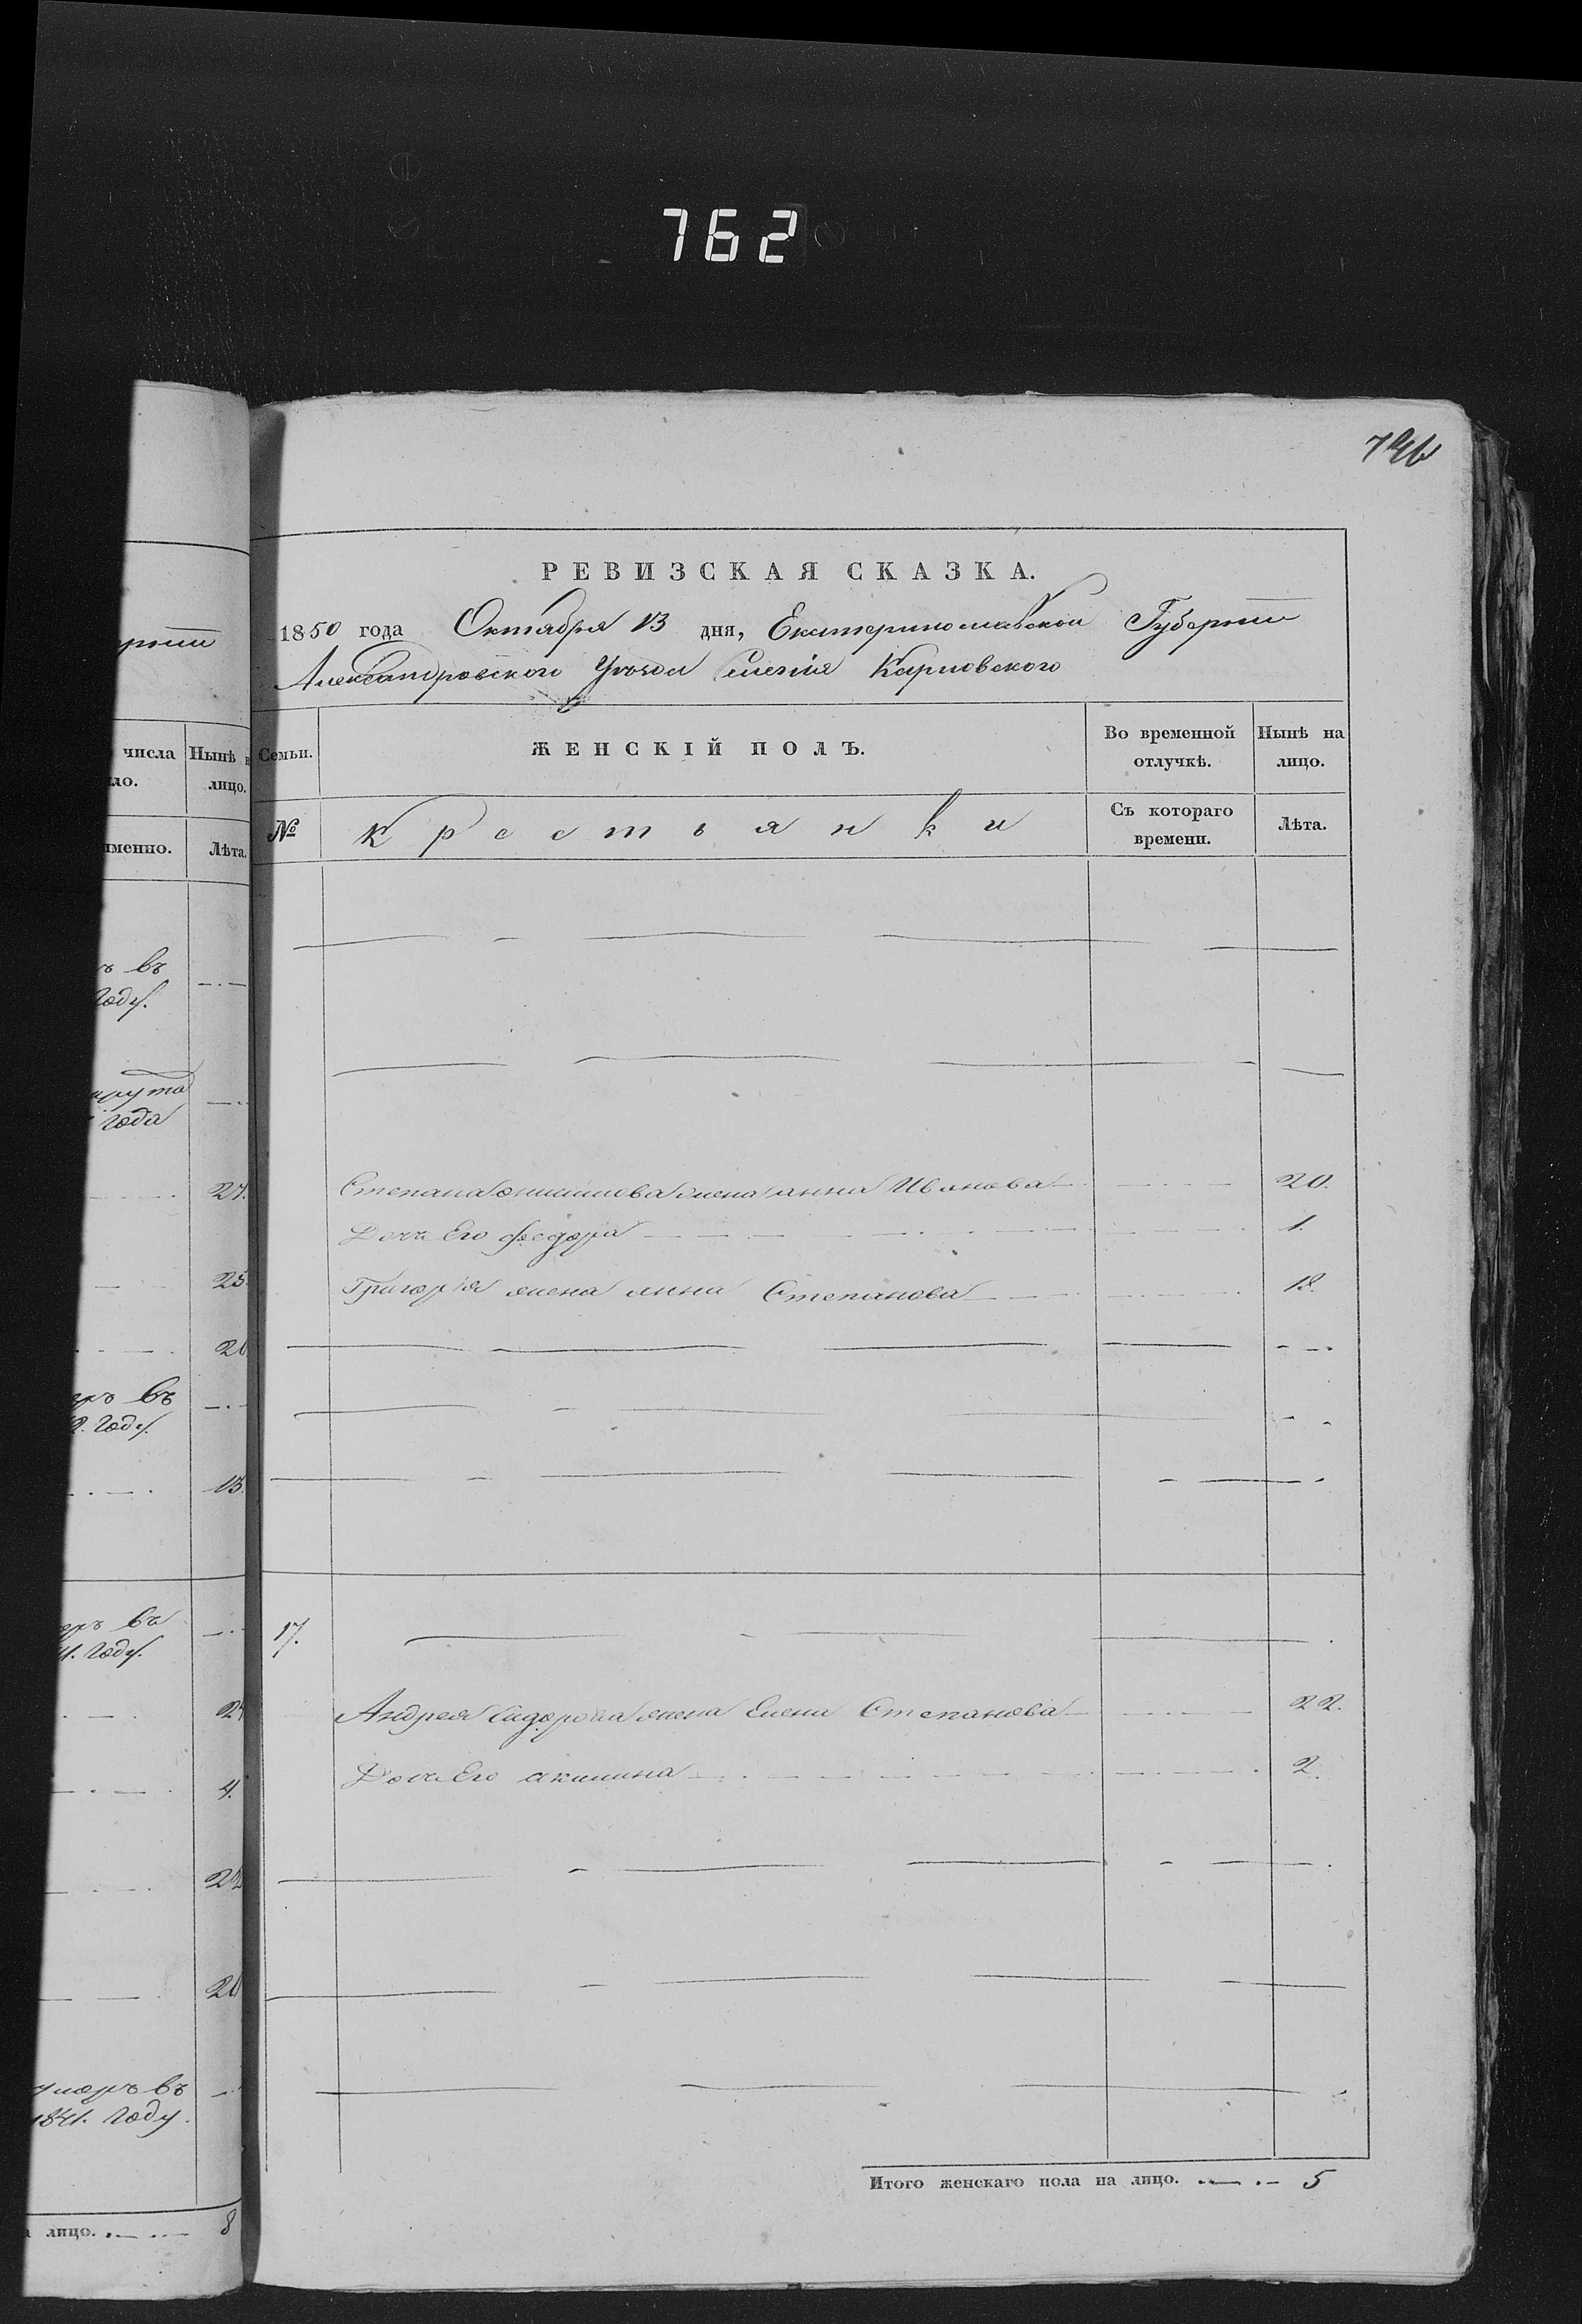 762
746
РЕВИЗСКАЯ СКАЗКА.
1850 года Октября 13 дня, Екатеринославской Губернiи
Александровского Уѣзда Имѣнiя Карповского
Семьи.
ЖЕНСКIЙ ПОЛЪ.
Во временной отлучкѣ.
Нынѣ на лицо.
№
Крестьянки
Съ котораго времени.
Лѣта.
Степана жена анна Иванова 20.
Дочь Его федора 1.
Григорiя жена анна Степанова 18.
17.
Андрея Сидорова жена Елена Степанова 22.
Дочь Его акилина 2.
Итого женскаго пола на лицо. 5
числа
Нынѣ
лицо.
именно.
Лѣта.
въ
Году.
года
27.
25
въ
Году.
13.
въ
Году.
24
4.
22
20
умеръ въ
1841. Году.
лицо. 8